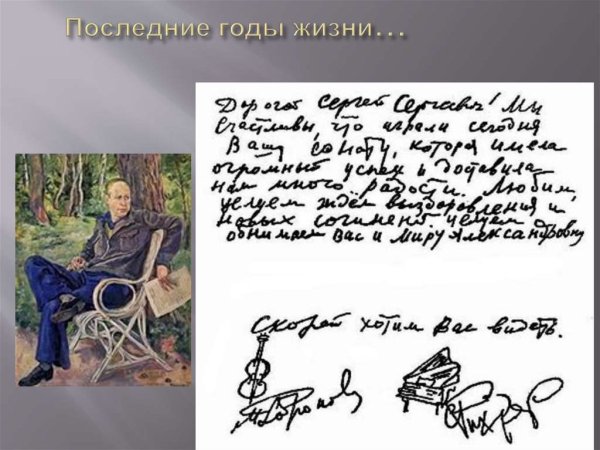 Последние годы жизни...
Дорогой Сергей Сергеевич! Мы
счастливы, что играли сегодня
Вашу сонату, которая имела
огромный успех и доставила
нам много радости. Любим,
целуем ждём выздоровления и
новых сочинений. целуем
обнимаем Вас и Миру Александровну
Скорей хотим Вас видеть.